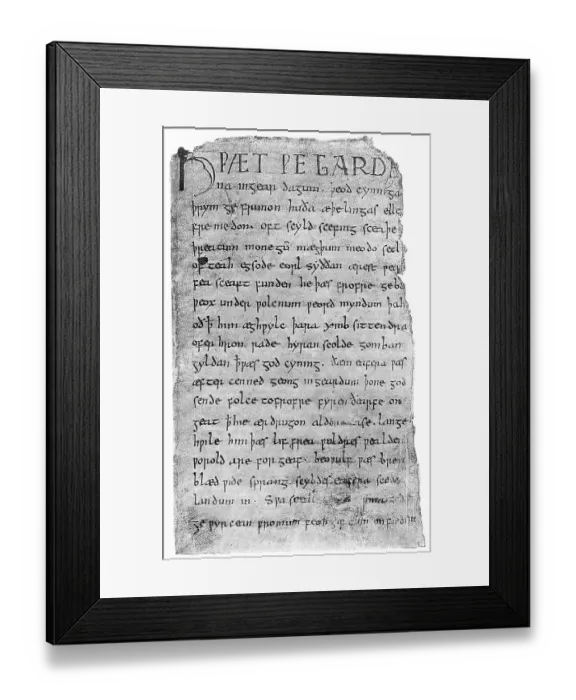 HǷÆT ǷE GARDE
na ingear dagum. þeod cyninga
þrym ge frunon huða æþelingas elle
fre medon. oft scyld scefing sceaþe
þreatum monegū mægþum meodo setl
of teah egsode eorl syððan ærest ƿea
fea sceaft funden he þæs frofre geba
ƿeox under ƿolcnum ƿeorð myndum þah
oð ꝥ him æghƿylc þara ymb sittendra
ofer hron rade hyran scolde gomban
gyldan ꝥ ƿæs god cyning. ðæm eafera ƿæs
æfter cenned geong ingeardum þone god
sende folce tofrofre fyren ðearfe on
geat ꝥ hie ær drugon aldor ase. lange
hƿile him þæs lif frea ƿuldres ƿealdend
ƿorold are for geaf. beoƿulf ƿæs breme
blæd ƿide sprang scyldes eafera scede
landum in. Sƿa sceal
ge ƿyrcean fromum feoh